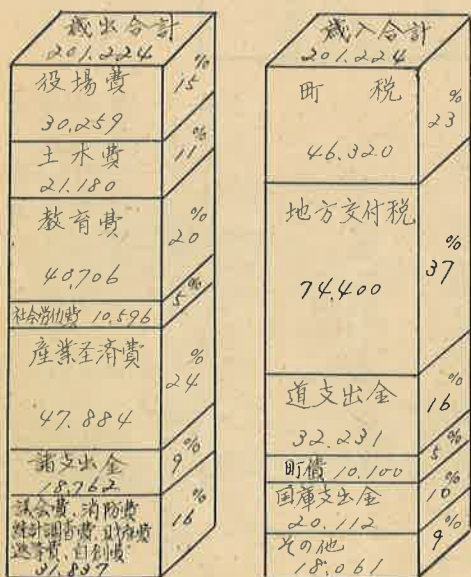 歳出合計
201.224
役場費
30.259
%
15
土木費
21.180
%
11
教育費
40.706
%
20
社会労働費 10.596
%
5
産業圣済費
47.884
%
24
諸支出金
18.762
%
9
議会費、消防費
統計調査費、財産費
選挙費、自創費
31.837
%
16
歳入合計
201.224
町 税
46.320
%
23
地方交付税
74.400
%
37
道支出金
32.231
%
16
町債 10.100
%
5
国庫支出金
20.112
%
10
その他
18.061
%
9